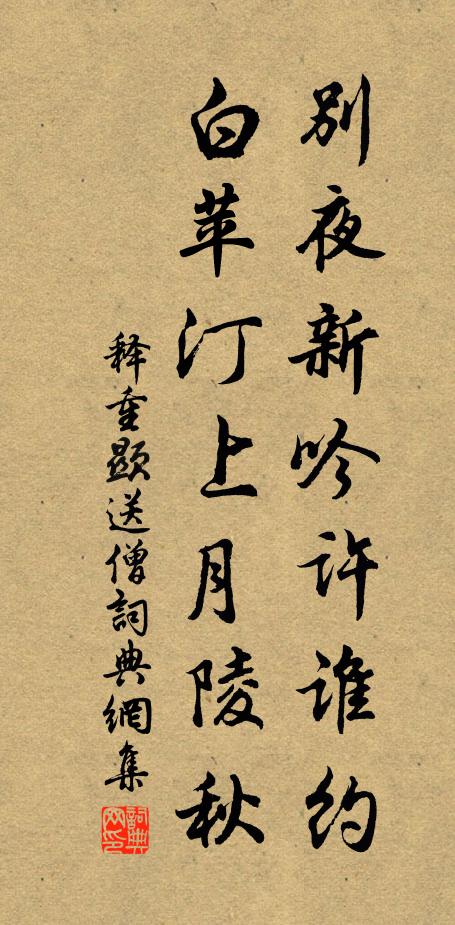 別夜新吟許誰約
白苹汀上月陵秋
释重顯送僧詞典網集
詞典网印